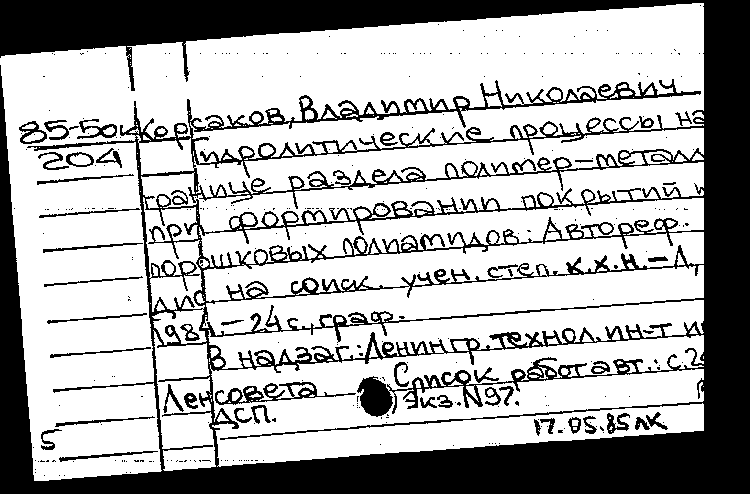 85-5ок Корсаков, Владимир Николаевич
204 Гидролитические процессы на
границе раздела полимер-металл
при формировании покрытий
порошковых полиамидов: Автореф.
дис. на соиск. учен. степ. к.х.н. - Л.,
1984. - 24 с., граф.
В надзаг.: Ленингр. технол. ин-т
Ленсовета. Список работ авт.: с.
ДСП. Экз. N97.
5
17.05.85 ЛК